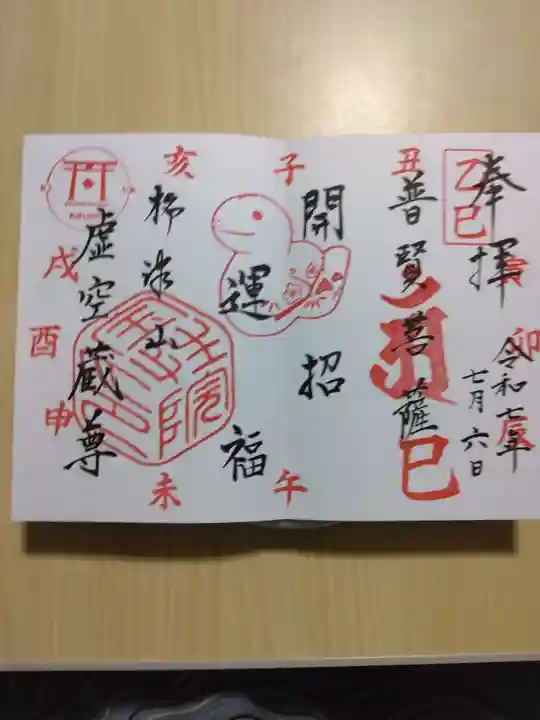 奉拝
乙巳
令和七年
七月六日
普賢菩薩
開運招福
虚空蔵尊
子
丑
卯
辰
巳
午
未
申
酉
戌
亥